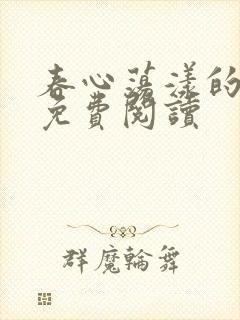 春心荡漾的
免費閱讀
群魔輪舞